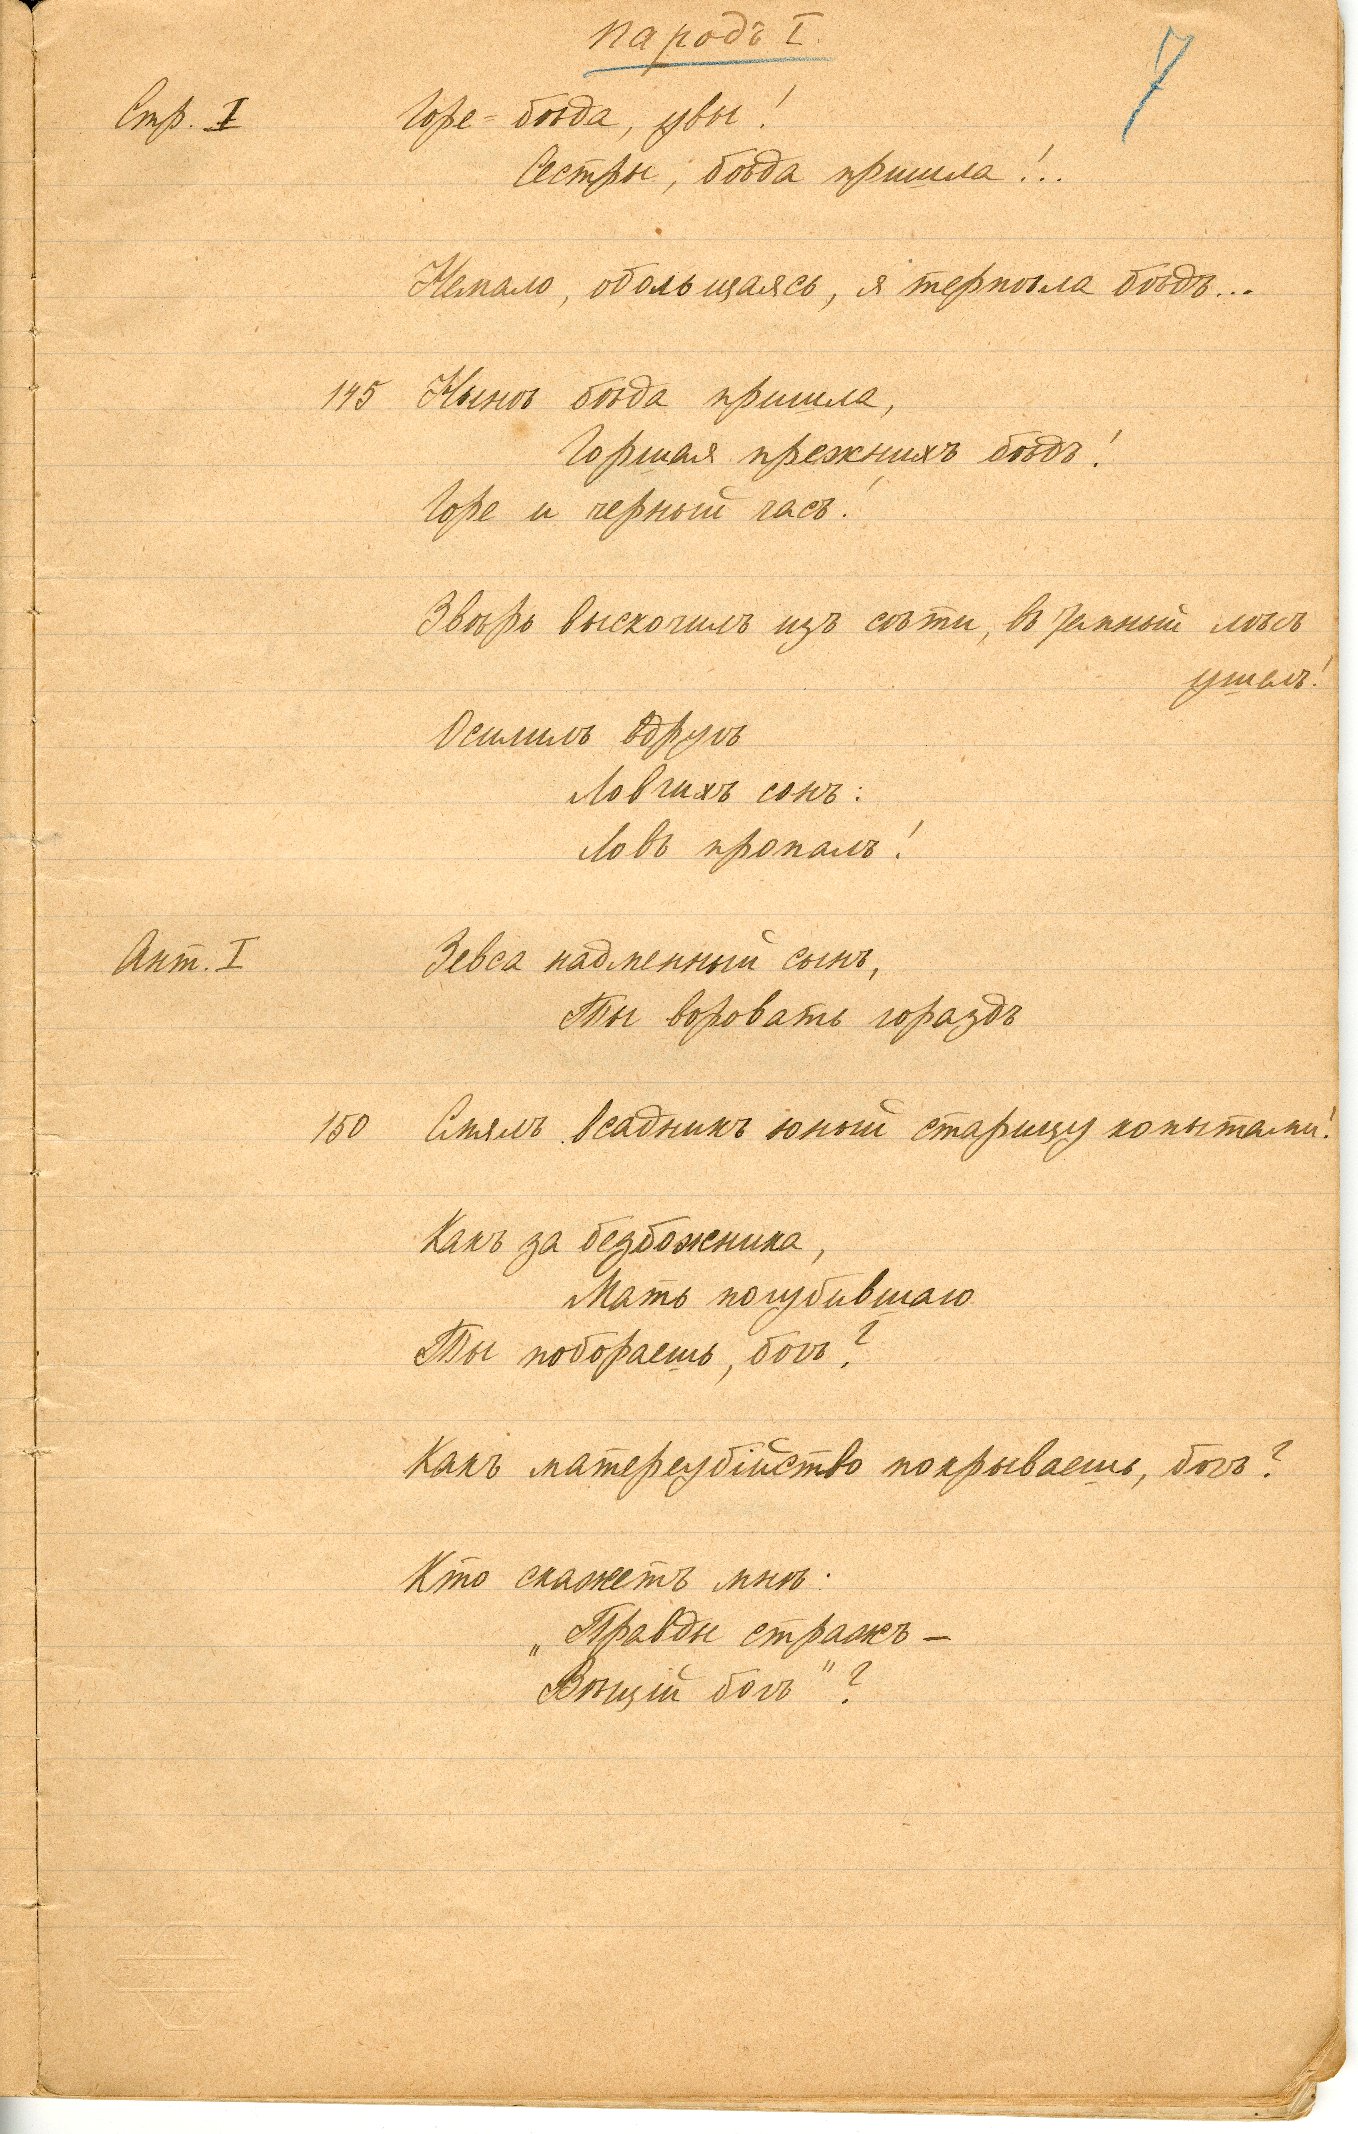 Пародъ I.
7
Стр. I Горе-бѣда, увы!
Сестры, бѣда пришла!..
Немало, обольщаясь, я терпѣла бѣдъ...
145 Нынѣ бѣда пришла,
Горшая прежнихъ бѣдъ!
Горе и черный часъ!
Звѣрь выскочилъ изъ сѣти, въ темный лѣсъ
ушелъ!
Осилилъ вдругъ
Ловчихъ сонъ:
Ловъ пропалъ!
Ант. I Зевса надменный сынъ,
Ты воровать гораздъ
150 Смялъ всадникъ юный старицу копытами!
Какъ за безбожника,
Мать погубившаго
Ты побораешь, богъ?
Какъ матереубійство покрываешь, богъ?
Кто скажетъ мнѣ:
„Правды стражъ —
Вѣщій богъ"?